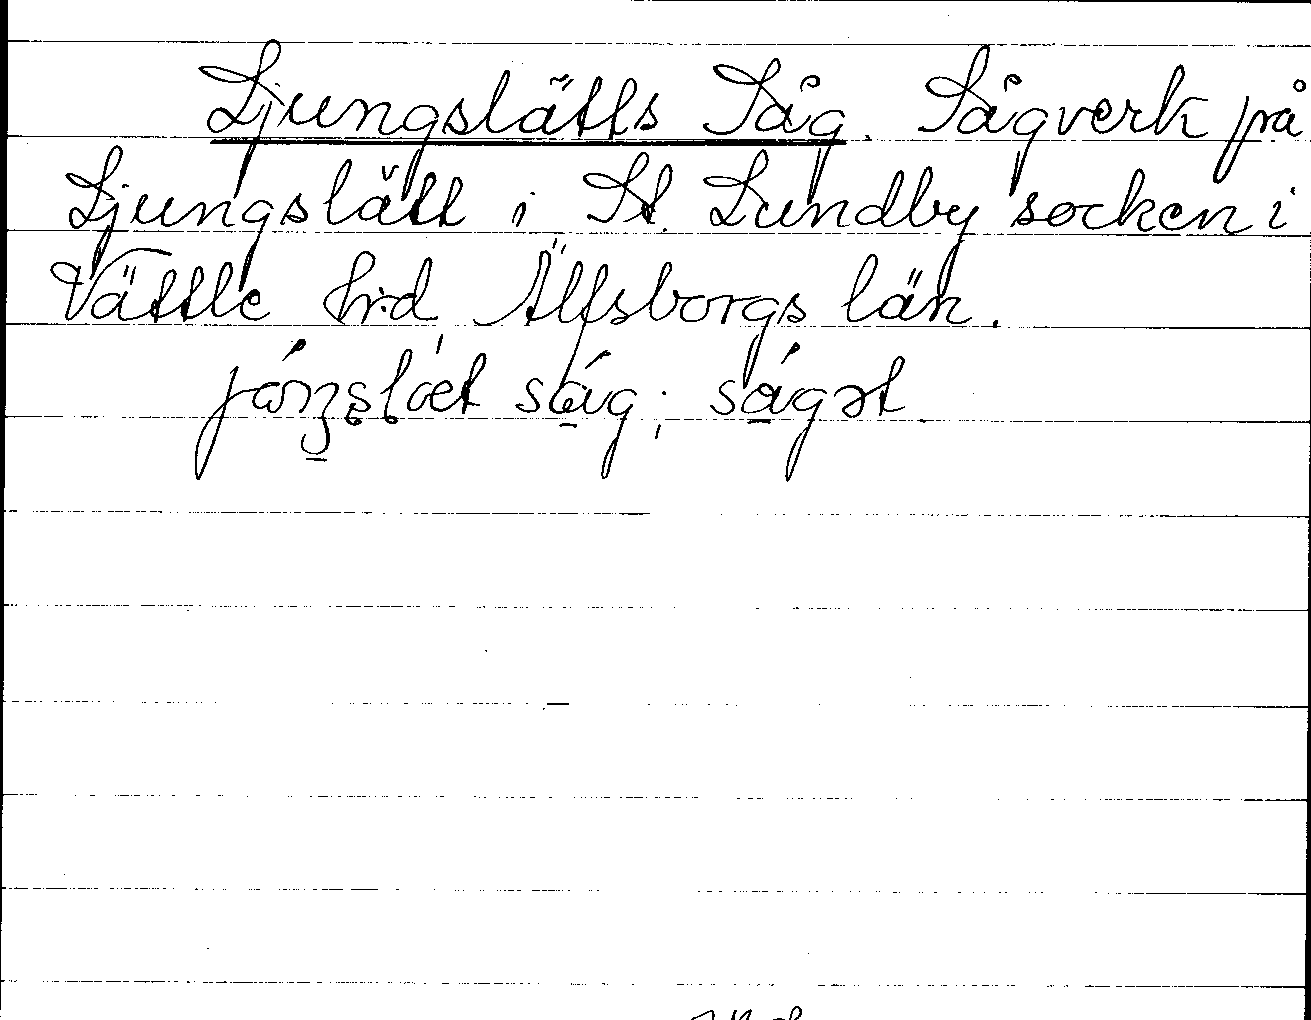 Ljungslätts Såg. Sågverk på
Ljungslätt i St. Lundby socken i
Vättle hrd, Älfsborgs län.
såg; ságət